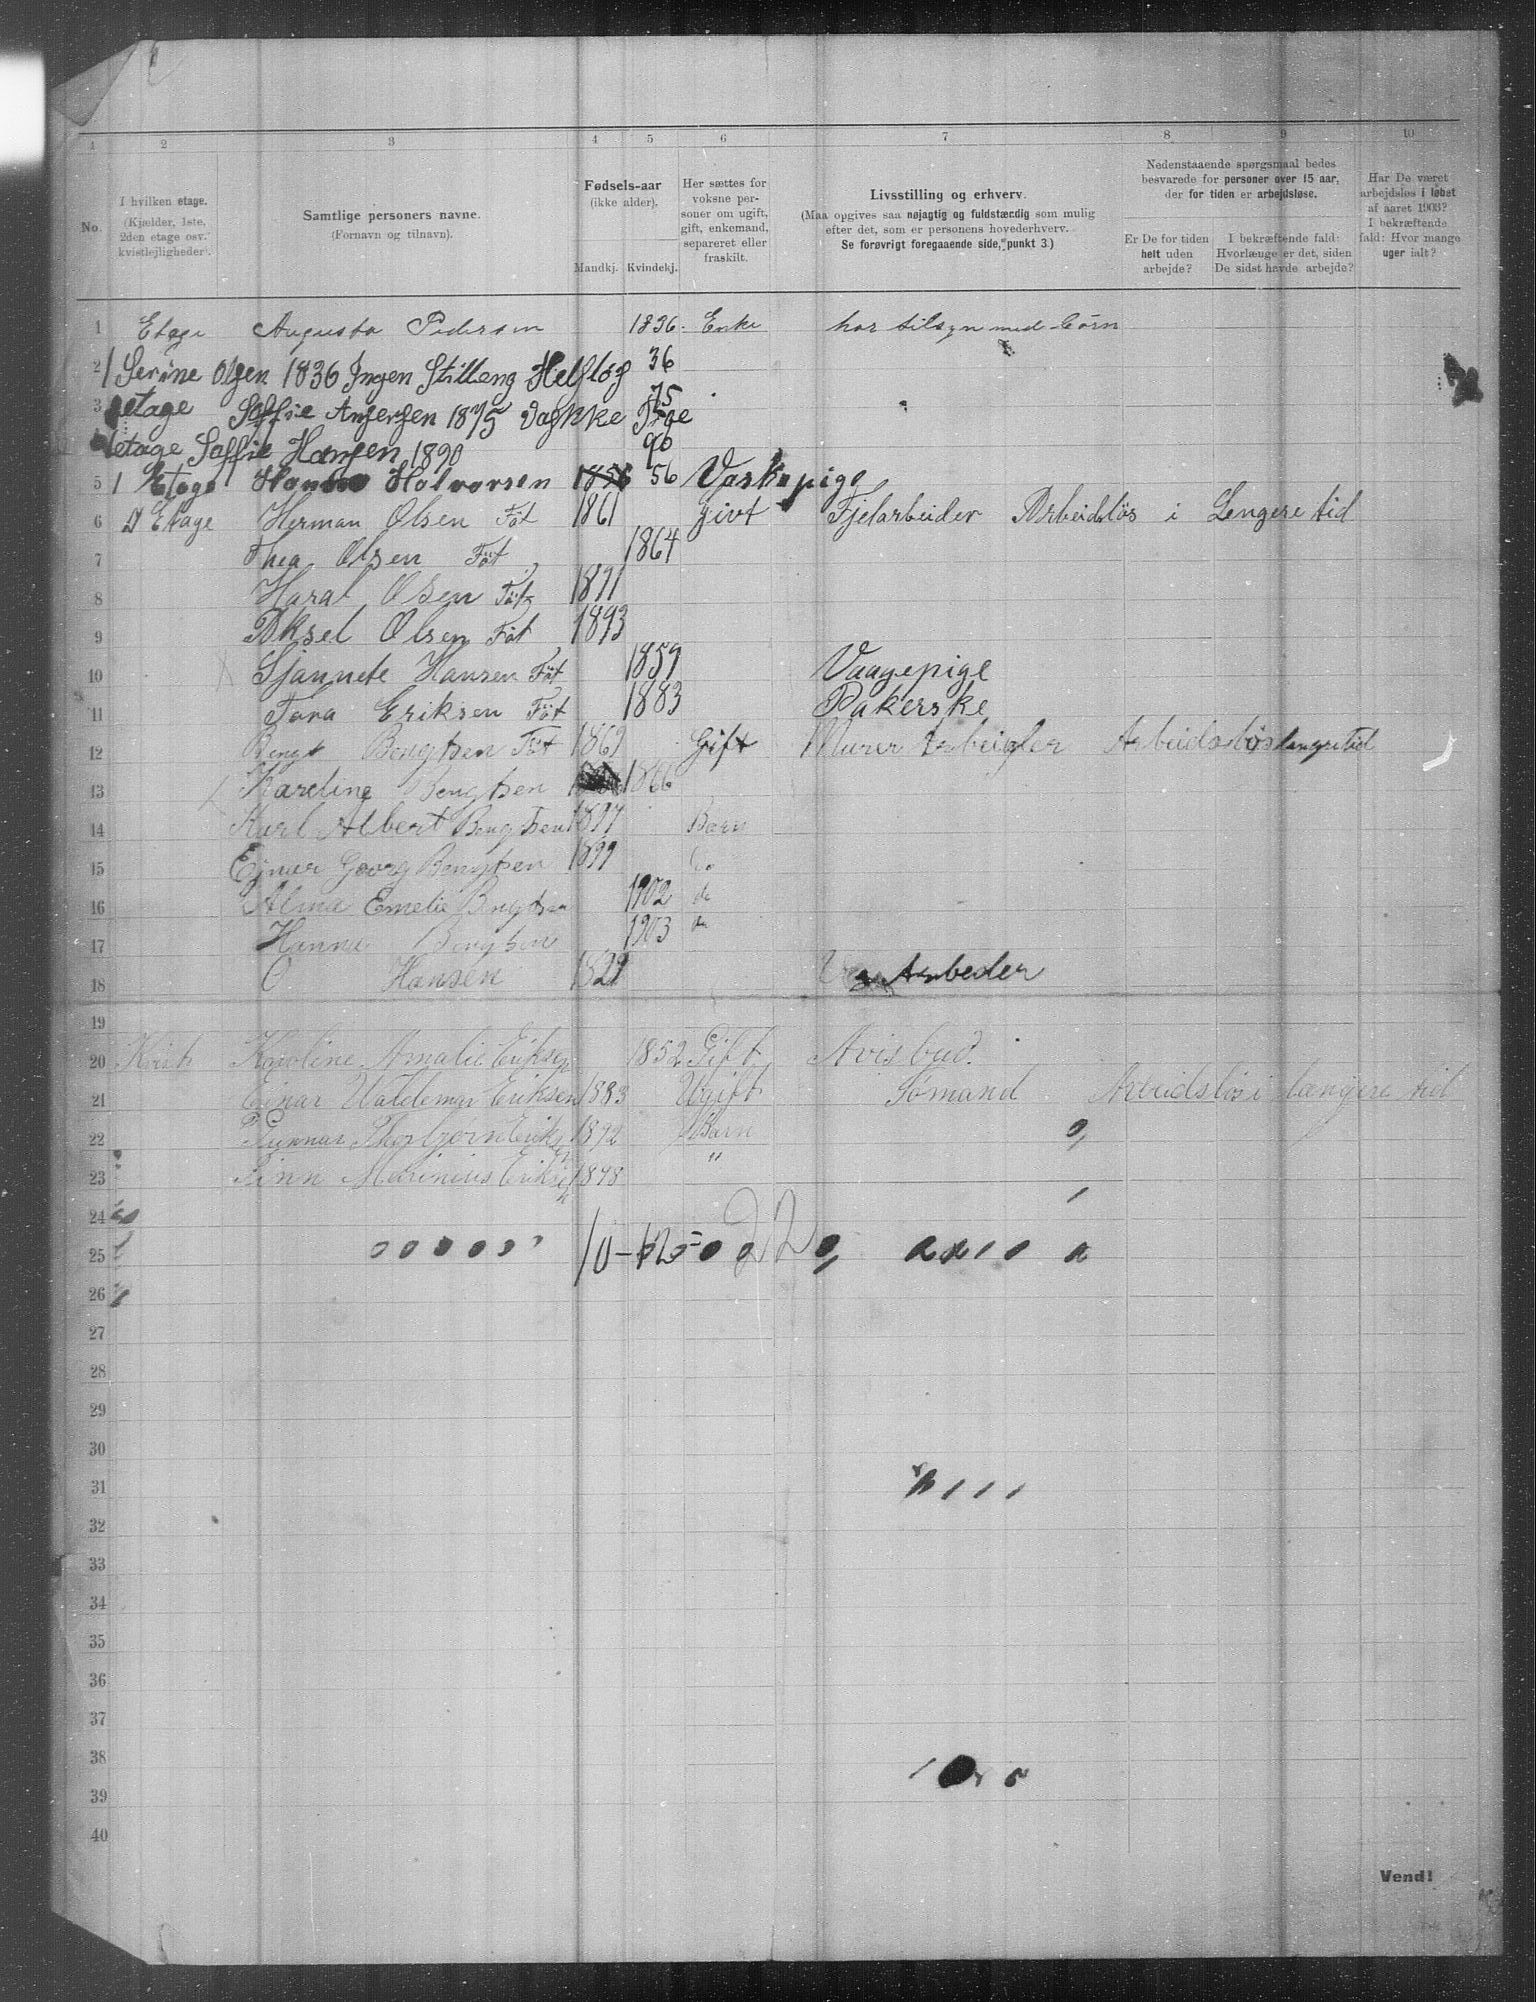 1 2 3 4 5 6 7 8 9 10
No.
I hvilken etage. (Kjælder, 1ste, 2den etage osv. kvistlejligheder).
Samtlige personers navne. (Fornavn og tilnavn).
Fødsels-aar (ikke alder).
Mandkj. Kvindekj.
Her sættes for voksne personer om ugift, gift, enkemand, separeret eller fraskilt.
Livsstilling og erhverv.
(Maa opgives saa nøjagtig og fuldstændig som mulig efter det, som er personens hovederhverv.
Se forøvrigt foregaaende side, punkt 3.)
Nedenstaaende spørgsmaal bedes besvarede for personer over 15 aar, der for tiden er arbejdsløse.
Er De for tiden helt uden arbejde?
I bekræftende fald: Hvorlænge er det, siden De sidst havde arbejde?
Har De været arbejdsløs i løbet af aaret 1903? I bekræftende fald: Hvor mange uger ialt?
1 Etage Augusta Pedersen 1836 Enke har tilsyn med børn
2 1 Serine Olsen 1836 Ingen Stilleng Helsløs 36
3 etage Soffie 1875 75
etage Soffie Hansen 1890 90
5 1 Etage Halvorsen 56 Vaskepige
6 Etage Herman Olsen Föt 1861 givt Arbeidslös i Lengere tid
7 Thea Olsen Föt 1864
8 Haral Olsen Föt 1891
9 Aksel Olsen Föt 1893
10 Hansen Föt 1859 Vaagepige
11 Tora Eriksen Föt 1883 Pakerske
12 Bengt Bengtsen Föt 1869 Gift Murer Arbeider Arbeidsløs længre tid
13 Kareline Bengtsen 1866
14 Karl Albert Bengtsen 1897 Barn
15 Ejnar Georg Bengtsen 1899 do
16 Alma Emelie Bengtsen 1902 do
17 Hanna Bengtsen 1903
18 O Hansen 1829 Arbeder
19
20 Kvist Karoline Amalie Eriksen 1852 Gift Avisbud.
21 Einar Valdemar Eriksen 1883 Ugift Sømand Arbeidsløs i længere tid
22 Gunnar Thorbjørn Eriksen 1892 Barn
23 Finn Marinius Eriksen 1898 "
24
25 10 – 12 = 22
26
27
28
29
30
31
32
33
34
35
36
37
38
39
40
Vend!